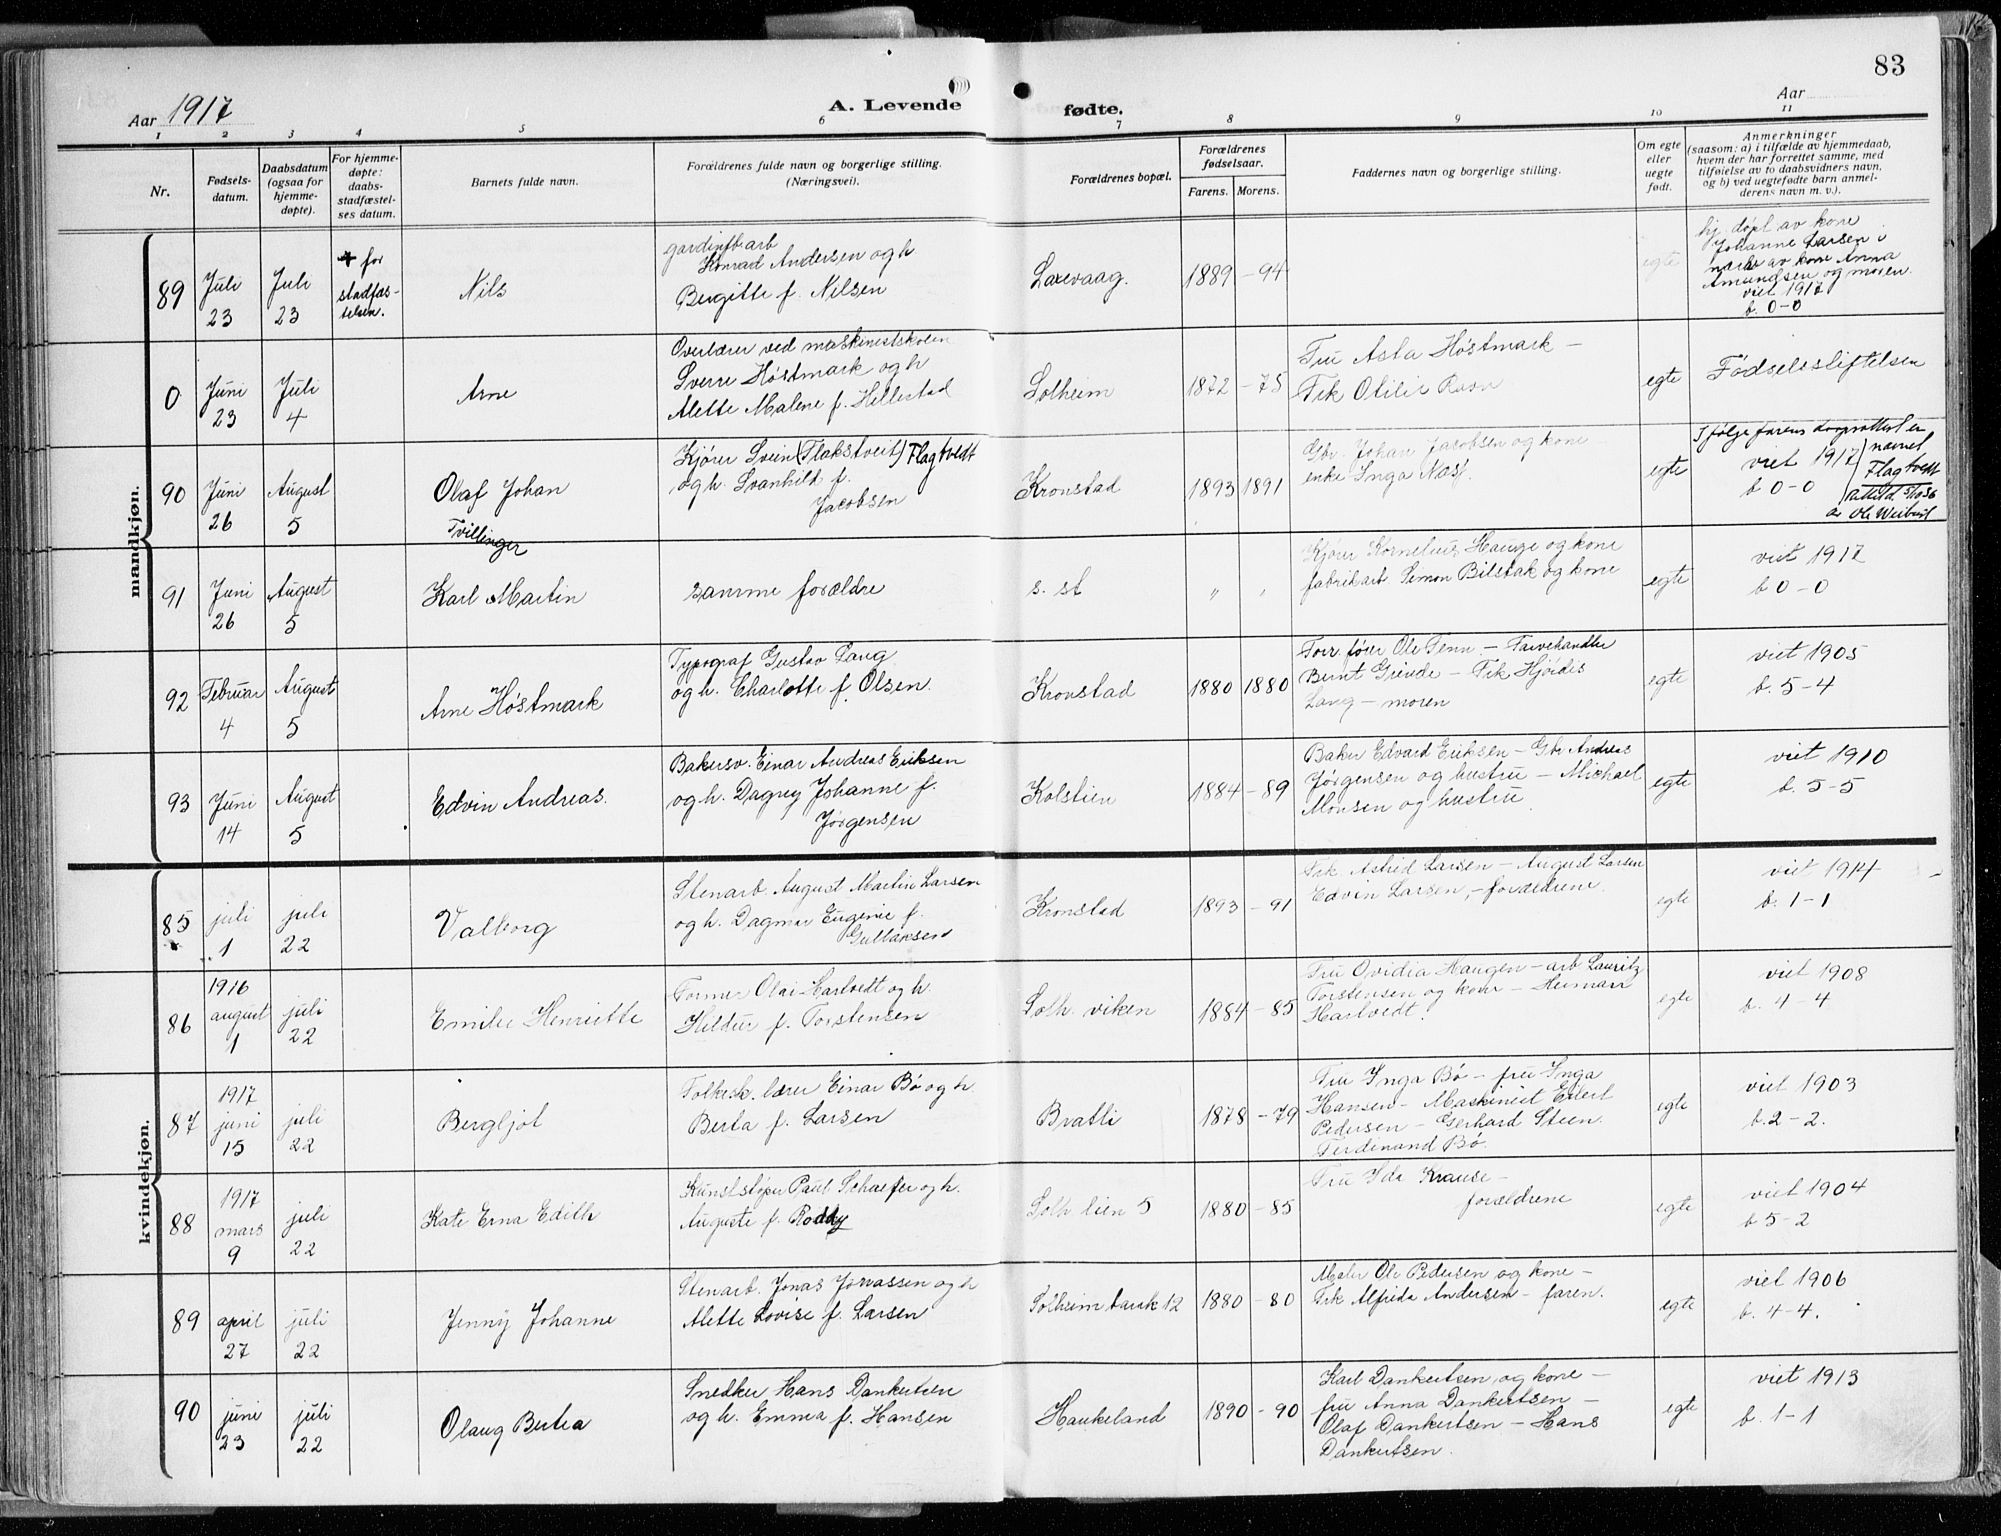 83
Aar 1917
A. Levende
fødte.
Aar
1 2 3 4 5 6 7 8 9 10 11
Nr.
Fødsels-
datum.
Daabsdatum
(ogsaa for
hjemme-
døpte).
For hjemme-
døpte:
daabs-
stadfæstel-
ses datum.
Barnets fulde navn.
Forældrenes fulde navn og borgerlige stilling.
(Næringsvei).
Forældrenes bopæl.
Forældrenes
fødselsaar.
Farens. Morens.
Faddernes navn og borgerlige stilling.
Om egte
eller
uegte
født.
Anmerkninger
(saasom: a) i tilfælde av hjemmedaab,
hvem der har forrettet samme, med
tilføielse av to daabsvidners navn,
og b) ved uegtefødte barn anmel-
derens navn m. v.).
mandkjøn.
89
Juli
23
Juli
23
for
stadfæs-
telsen.
Nils
Konrad Andersen og h
Bergitte f. Nilsen
Laxevaag.
1889 - 94
egte
hj. døpt av kone
Johanne Larsen i
nærv av kone Anna
Amundsen og moren.
viet 1917
b. 0-0
0
Juni
23
Juli
4
Arne
Overlærer ved maskinistskolen
Sverre Høstmark og h
Alette Malene f. Hellestad
Solheim
1872 - 75
Fru Asta Høstmark -
Frk Otilie
egte
Fødselsstiftelsen
90
Juni
26
August
5
Olaf Johan
Tvillinger
Kjører Svein (Flakstveit) Flagtvedt
og h. Svanhild f.
Jacobsen
Kronstad
1893 1891
Gbr. Johan Jacobsen og kone
enke Inga Næss.
egte
viet 1917
b 0-0
I følge farens daapsattest er
navnet
Flagtvedt
91
Juni
26
August
5
Karl Martin
samme forældre
s. st
" "
Kjører Kornelius Hauge og kone
fabrikarb Simon Bilstak og kone
egte
viet 1917
b 0-0
92
Februar
4
August
5
Arne Høstmark
Typograf Gustav Lang
og h. Charlotte f. Olsen.
Kronstad
1880 1880
Forr.fører Ole Tenn - Farvehandler
Bernt Grinde - Frk Hjørdis
Lang - moren
egte
viet 1905
b. 5-4
93
Juni
14
August
5
Edvin Andreas.
Bakersv. Einar Andreas Eriksen
og h. Dagny Johanne f.
Jørgensen
Kolstien
1884 - 89
Baker Edvard Eriksen - Gbr Andreas
Jørgensen og hustru - Michael
Monsen og hustru.
egte
viet 1910
b. 5-5
kvindekjøn.
85
juli
1
juli
22
Valborg
Stenarb. August Martin Larsen
og h. Dagmar Eugenie f.
Gullaksen
Kronstad
1893 - 91
Frk. Astrid Larsen - August Larsen
Edvin Larsen, - forældrene.
egte
viet 1914
b. 1-1
86
1916
august
1
juli
22
Emilie Henriette
Former Olai Hartvedt og h.
Hildur f. Torstensen
Solh. viken
1884 - 85
Fru Ovidia Haugen - arb Lauritz
Torstensen og kone - Herman
Hartvedt.
egte
viet 1908
b. 4-4
87
1917
juni
15
juli
22
Bergljot
Folkesk. lærer Einar Bø og h
Berta f. Larsen
Bratli
1878 - 79
Fru Inga Bø - fru Inga
Hansen - Maskinist Eilert
Pedersen - Gerhard Steen
Ferdinand Bø.
egte
viet 1903
b. 2-2.
88
1917
mars
9
juli
22
Kate Erna Edith
Kunststøper Paul Schaefer og h.
Auguste f.
Solh lien 5
1880 - 85
Fru Ida Krause -
forældrene
egte
viet 1904
b 5-2
89
april
27
juli
22
Jenny Johanne
Stenarb. Jonas Jonassen og h
Alette Lovise f. Larsen
Solheim barak 12
1880 - 80
Maler Ole Pedersen og kone -
Frk Alfrida Andersen - faren.
egte
viet 1906
b. 4-4.
90
juni
23
juli
22
Olaug Bertha
Snedker Hans Dankertsen
og h. Emma f. Hansen
Haukeland
1890 - 90
Karl Dankertsen og kone -
fru Anna Dankertsen -
Olaf Dankertsen - Hans
Dankertsen.
egte
viet 1913
b. 1-1